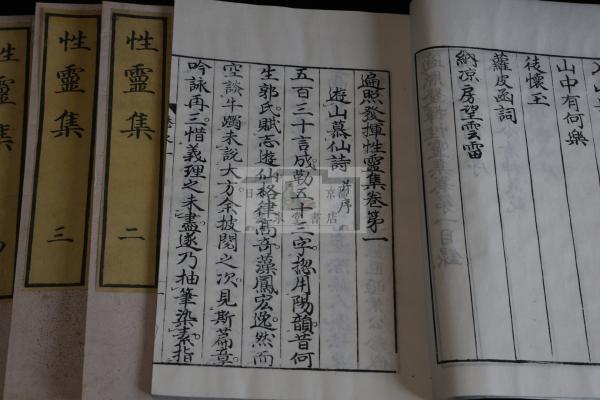 山中有何樂
徒懷玉
蘿皮函詞
納涼房望雲雷
遍照發揮性靈集卷第一
遊山慕仙詩 并序
五百三十言成勒五十三字揔用陽韻昔何
生郭氏賦志遊仙格律高奇藻鳳宏逸然而
空談牛躅未說大方余披閱之次見斯篇章
吟詠再三惜義理之未盡遂乃抽筆染素指
性靈集 二
性靈集 三
性靈集